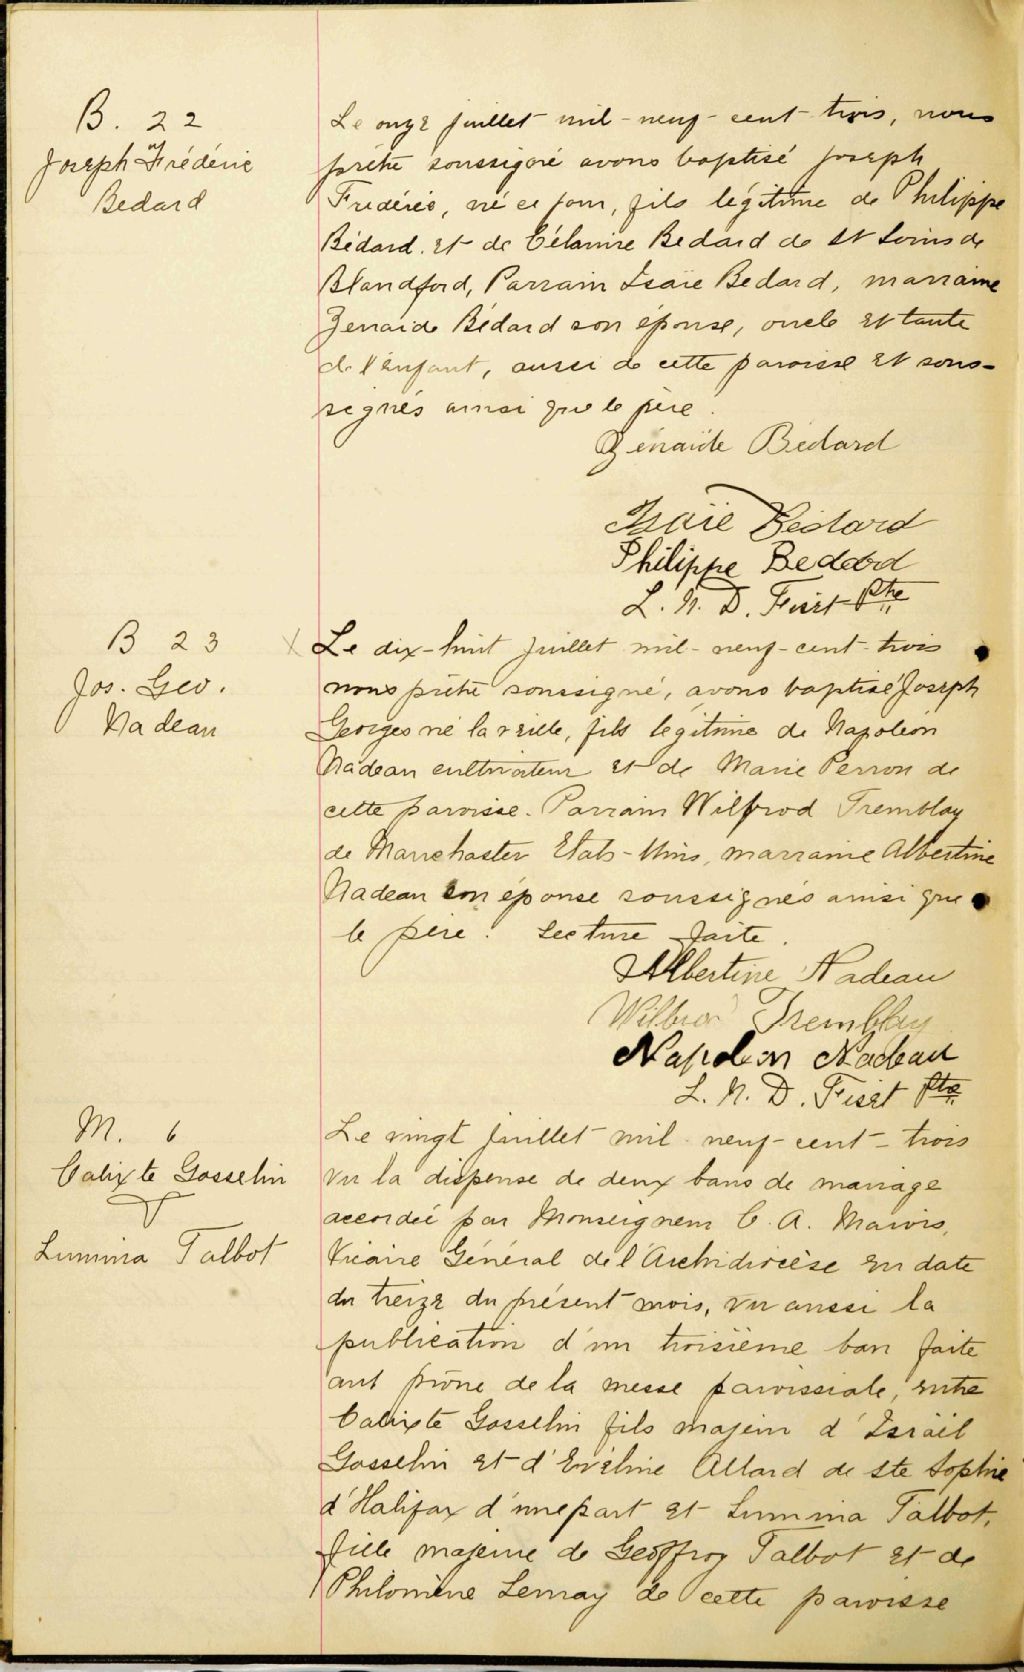 B. 22
Joseph Frédéric
Bedard
Le onze juillet mil-neuf-cent-trois, nous
prêtre soussigné avons baptisé Joseph
Frédéric, né ce jour, fils légitime de Philippe
Bédard et de Célanire Bedard de St Louis de
Blandford, Parrain Isaïe Bedard, marraine
Zenaïde Bédard son épouse, oncle et tante
de l'enfant, aussi de cette paroisse et sous-
signés ainsi que le père.
Zénaïde Bédard
Isaïe Bédard
Philippe Bedard
L. N. D. Fiset Ptre
B 23
Jos. Geo.
Nadeau
X Le dix-huit juillet mil-neuf-cent-trois
nous prêtre soussigné, avons baptisé Joseph
Georges né la veille, fils légitime de Napoléon
Nadeau cultivateur et de Marie Perron de
cette paroisse. Parrain Wilfrod Tremblay
de Manchaster Etats-Unis, marraine Albertine
Nadeau son épouse soussignés ainsi que
le père. Lecture faite.
Albertine Nadeau
Tremblay
Napoleon Nadeau
L. N. D. Fiset Ptre
M. 6
Calixte Gosselin
&
Lumina Talbot
Le vingt juillet mil neuf-cent-trois
vu la dispense de deux bans de mariage
accordée par Monseigneur C. A. Marois,
Vicaire Général de l'Archidiocèse en date
du treize du présent mois, vu aussi la
publication d'un troisième ban faite
aut prône de la messe paroissiale, entre
Calixte Gosselin fils majeur d'Israël
Gosselin et d'Evéline Allard de Ste Sophie
d'Halifax d'une part et Lumina Talbot,
fille majeure de Geoffroy Talbot et de
Philomène Lemay de cette paroisse